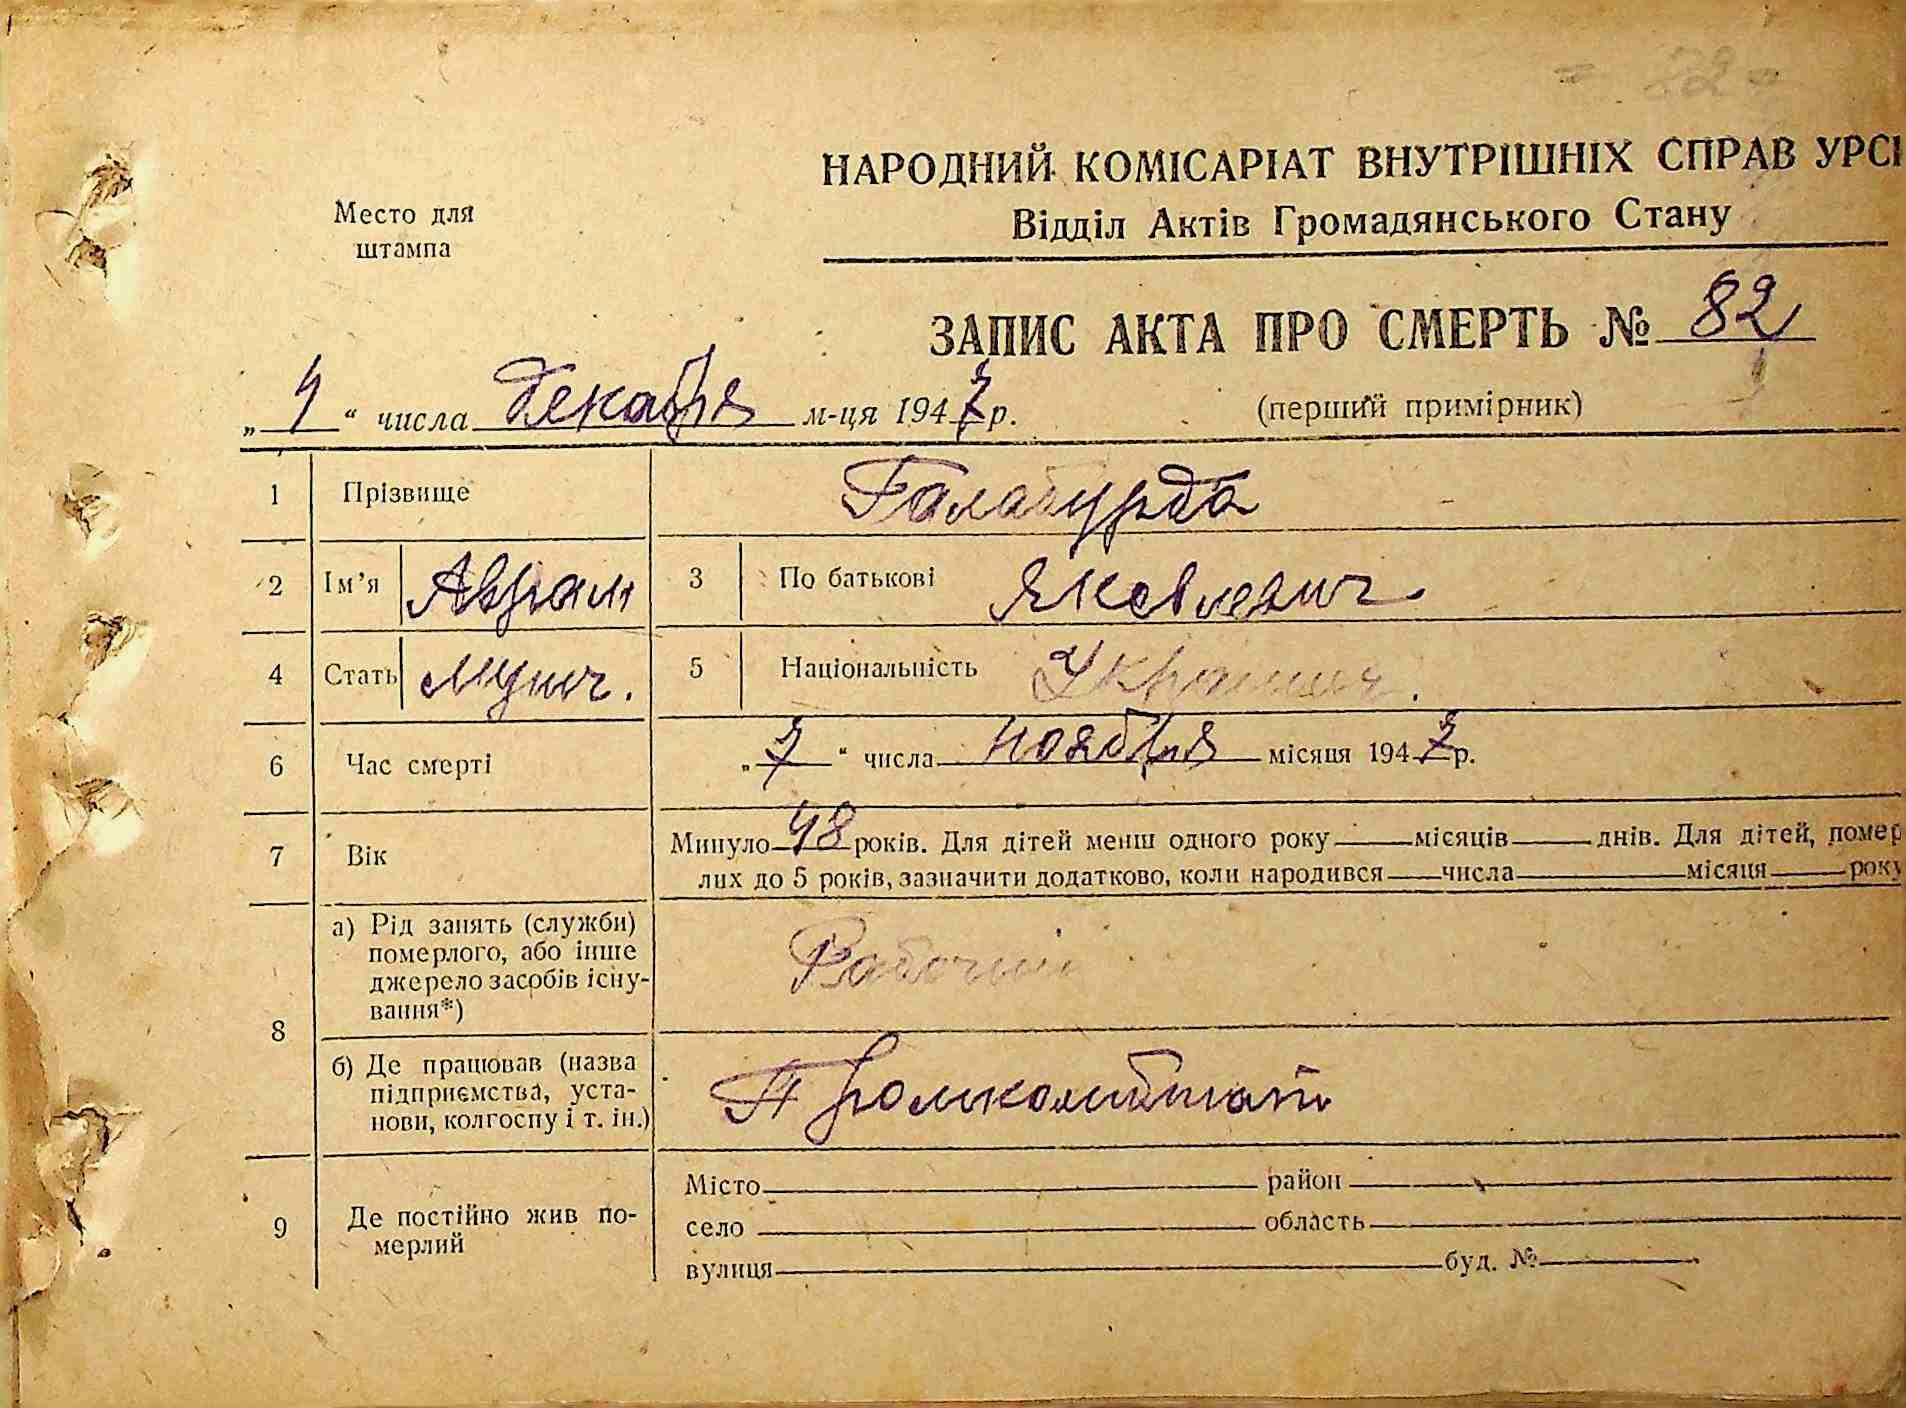 - 82 -
НАРОДНИЙ КОМІСАРІАТ ВНУТРІШНІХ СПРАВ УРСР
Відділ Актів Громадянського Стану
Место для
штампа
ЗАПИС АКТА ПРО СМЕРТЬ № 82
„ 4 “ числа декабря м-ця 1947 р. (перший примірник)
1 Прізвище Галабурда
2 Ім’я Аврам 3 По батькові Яковлевич
4 Стать Мужч. 5 Національність Украинец.
6 Час смерті „ 7 “ числа ноября місяця 1947 р.
7 Вік Минуло 48 років. Для дітей менш одного року місяців днів. Для дітей, помер
лих до 5 років, зазначити додатково, коли народився числа місяця року
8 а) Рід занять (служби)
померлого, або інше
джерело засобів існу-
вання*) Рабочий
б) Де працював (назва
підприємства, уста-
нови, колгоспу і т. ін.) Промкомбинат
9 Де постійно жив по-
мерлий
Місто район
село область
вулиця буд. №